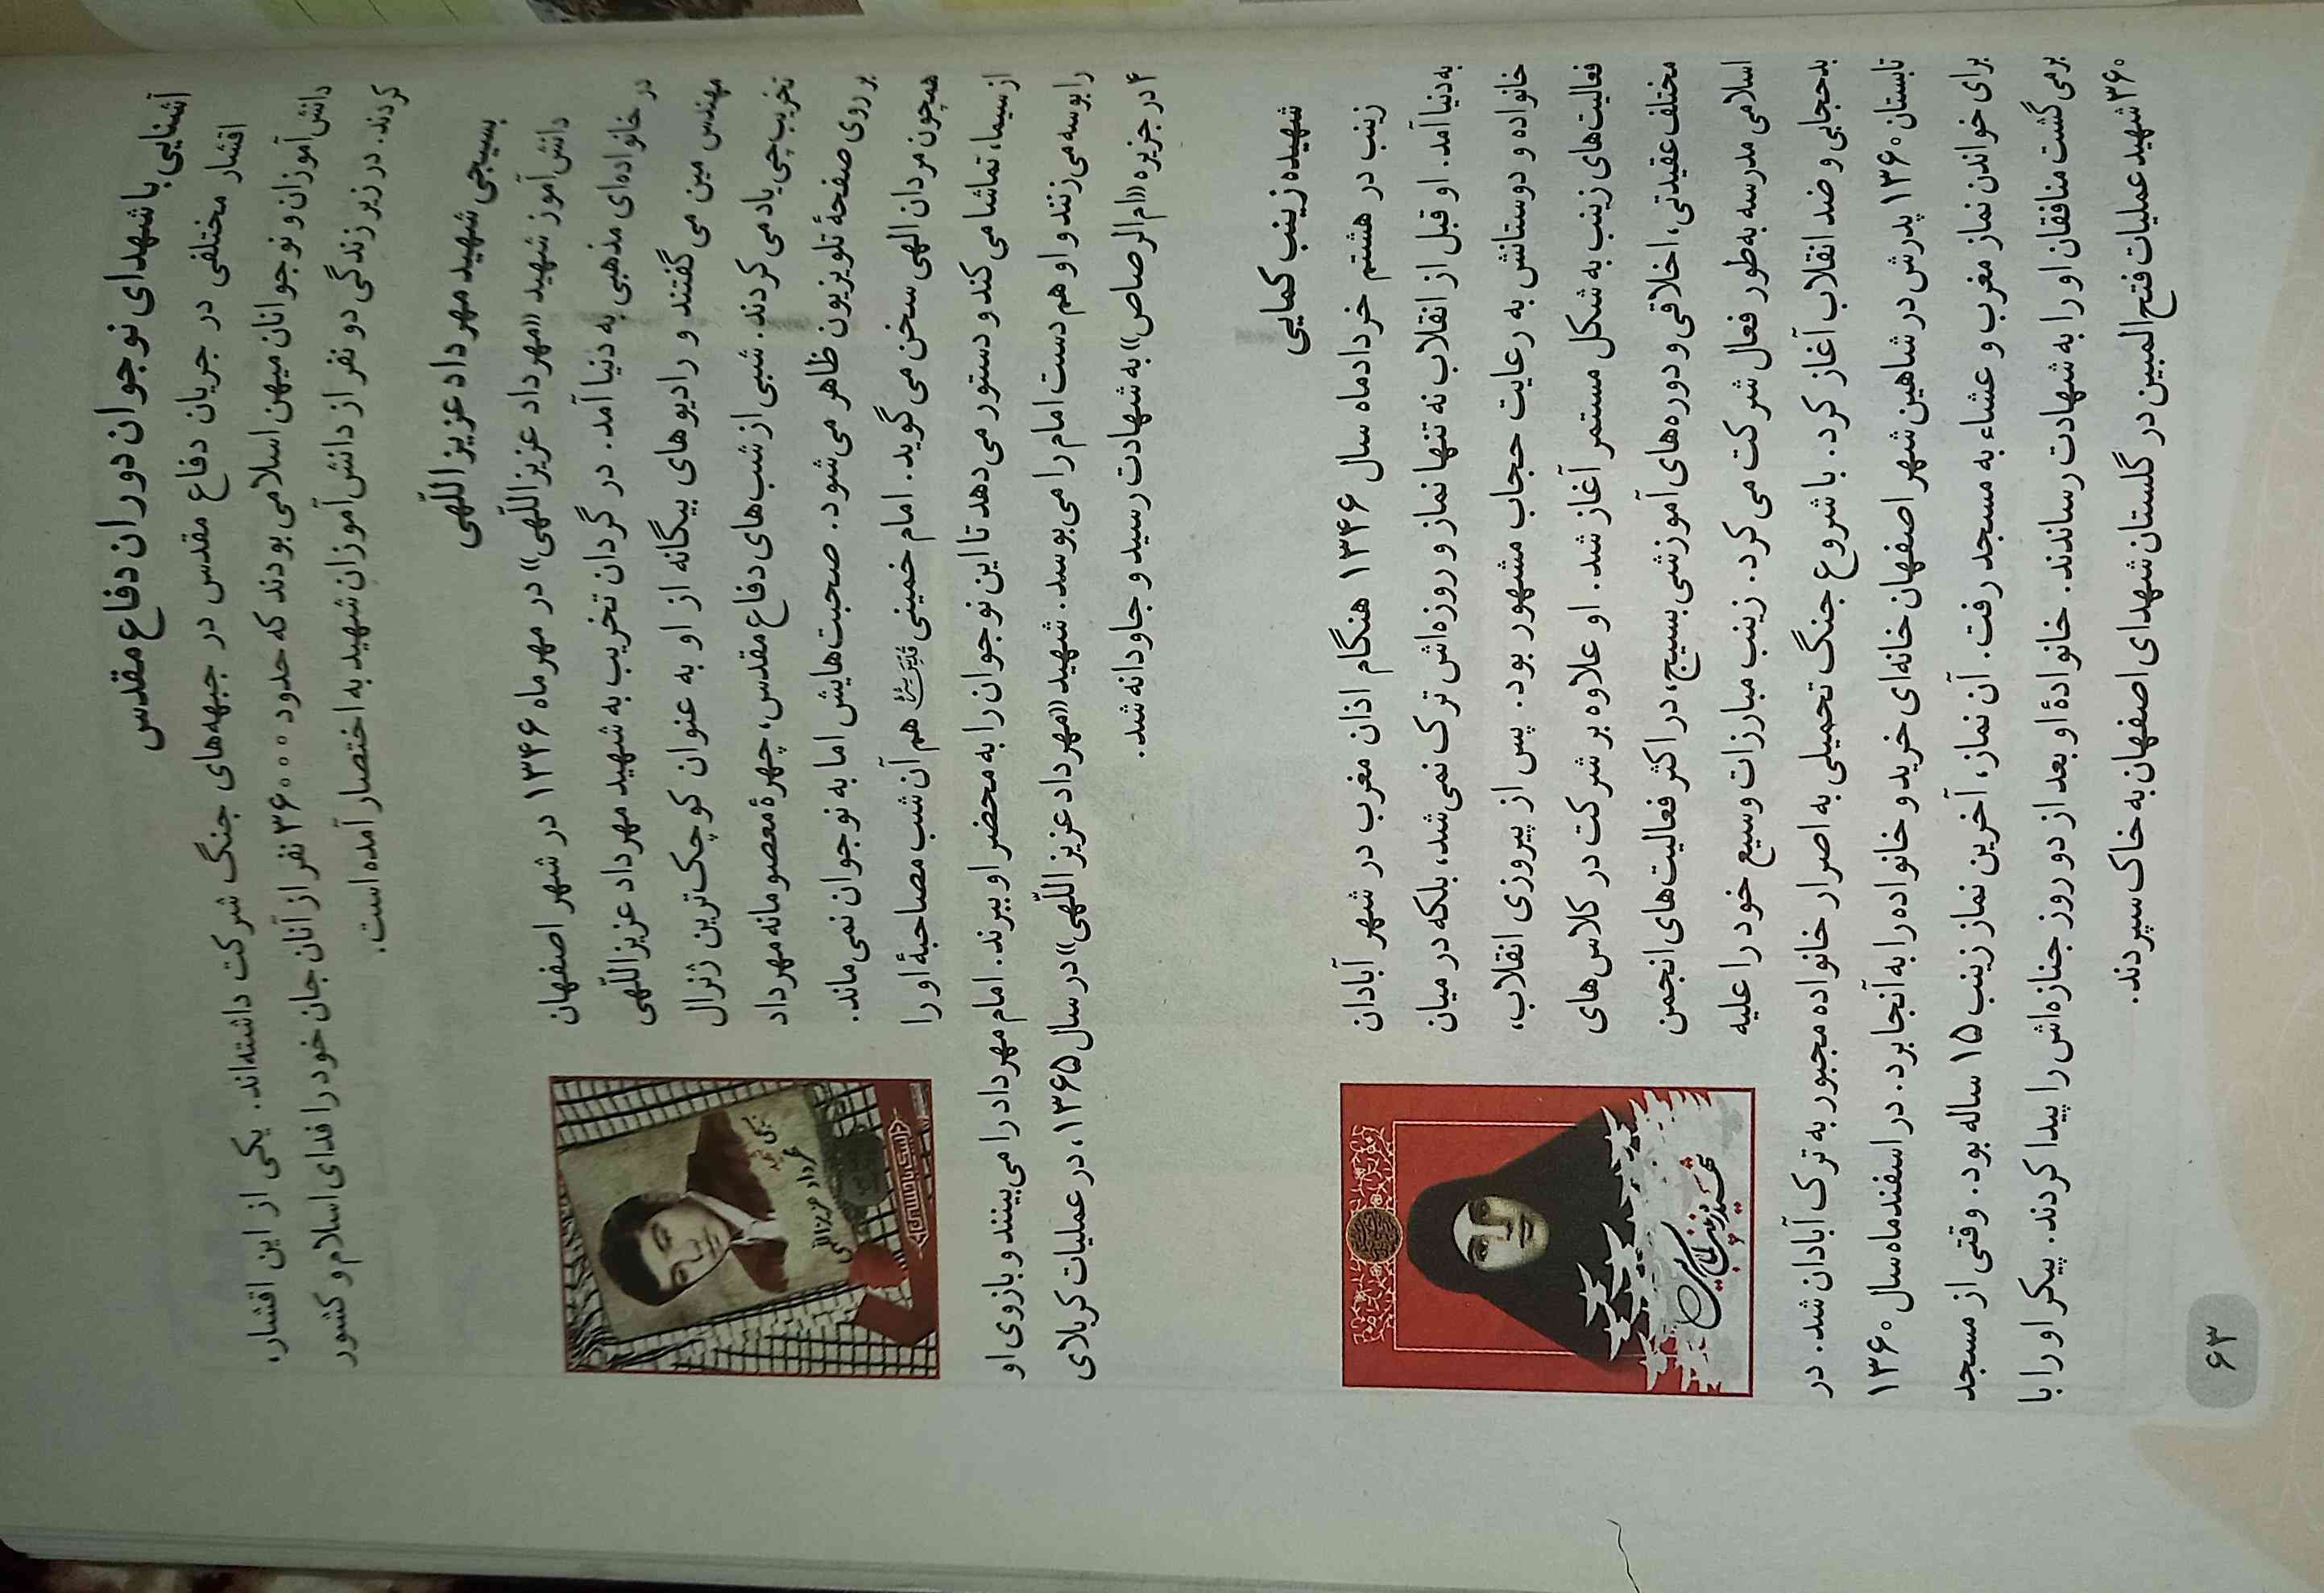 آشنایی با شهدای نوجوان دوران دفاع مقدس
اقشار مختلفی در جریان دفاع مقدس در جبهه‌های جنگ شرکت داشته‌اند. یکی از این اقشار،
دانش‌آموزان و نوجوانان میهن اسلامی بودند که حدود ۳۶۰۰۰ نفر از آنان جان خود را فدای اسلام و کشور
کردند. در زیر زندگی دو نفر از دانش‌آموزان شهید به اختصار آمده است.
بسیجی شهید مهرداد عزیزاللّهی
دانش‌آموز شهید «مهرداد عزیزاللّهی» در مهرماه ۱۳۴۶ در شهر اصفهان
در خانواده‌ای مذهبی به دنیا آمد. در گردان تخریب به شهید مهرداد عزیزاللّهی
مهندس مین می‌گفتند و رادیوهای بیگانه از او به عنوان کوچک‌ترین ژنرال
تخریب‌چی یاد می‌کردند. شبی از شب‌های دفاع مقدس، چهرهٔ معصومانه مهرداد
بر روی صفحهٔ تلویزیون ظاهر می‌شود. صحبت‌هایش اما به نوجوان نمی‌ماند.
همچون مردان الهی سخن می‌گوید. امام خمینی هم آن شب مصاحبهٔ او را
از سیما، تماشا می‌کند و دستور می‌دهد تا این نوجوان را به محضر او ببرند. امام مهرداد را می‌بینند و بازوی او
را بوسه می‌زنند و او هم دست امام را می‌بوسد. شهید «مهرداد عزیزاللّهی» در سال ۱۳۶۵، در عملیات کربلای
۴ در جزیره «ام‌الرصاص» به شهادت رسید و جاودانه شد.
مهرداد عزیزاللهی
شهیده زینب کمایی
زینب در هشتم خردادماه سال ۱۳۴۶ هنگام اذان مغرب در شهر آبادان
به دنیا آمد. او قبل از انقلاب نه تنها نماز و روزه‌اش ترک نمی‌شد، بلکه در میان
خانواده و دوستانش به رعایت حجاب مشهور بود. پس از پیروزی انقلاب،
فعالیت‌های زینب به شکل مستمر آغاز شد. او علاوه بر شرکت در کلاس‌های
مختلف عقیدتی، اخلاقی و دوره‌های آموزشی بسیج، در اکثر فعالیت‌های انجمن
اسلامی مدرسه به‌طور فعال شرکت می‌کرد. زینب مبارزات وسیع خود را علیه
بدحجابی و ضد انقلاب آغاز کرد. با شروع جنگ تحمیلی به اصرار خانواده مجبور به ترک آبادان شد. در
تابستان ۱۳۶۰ پدرش در شاهین شهر اصفهان خانه‌ای خرید و خانواده را به آنجا برد. در اسفندماه سال ۱۳۶۰
برای خواندن نماز مغرب و عشاء به مسجد رفت. آن نماز، آخرین نماز زینب ۱۵ ساله بود. وقتی از مسجد
برمی‌گشت منافقان او را به شهادت رساندند. خانوادهٔ او بعد از دو روز جنازه‌اش را پیدا کردند. پیکر او را با
۳۶۰ شهید عملیات فتح‌المبین در گلستان شهدای اصفهان به خاک سپردند.
شهیده زینب کمایی
۶۳